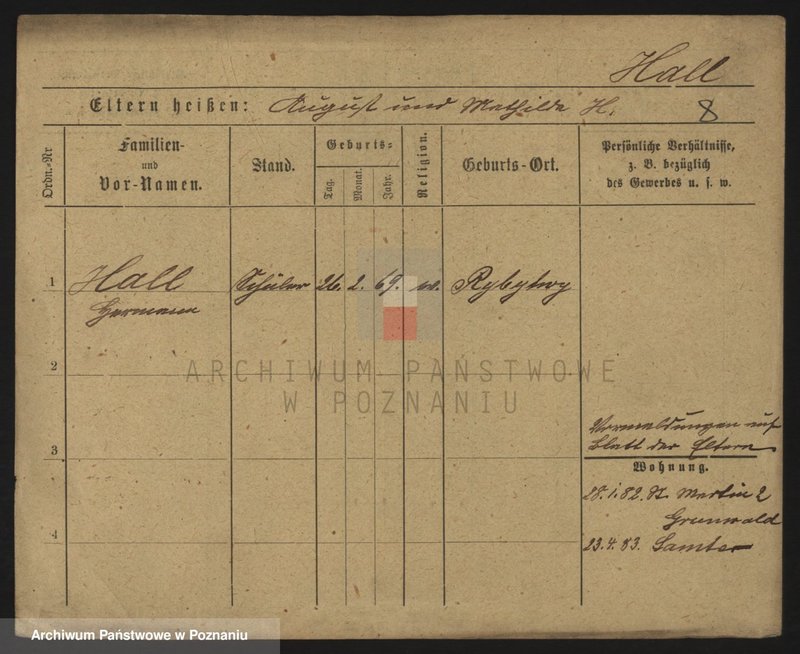 Hall
Eltern heißen: August und Mathilde H. 8
Ordn.=Nr
Familien-
und
Vor-Namen.
Stand.
Geburts=
Tag.
Monat.
Jahr.
Religion.
Geburts-Ort.
Persönliche Verhältnisse,
z. B. bezüglich
des Gewerbes u. s. w.
1 Hall Schüler 26. 2. 69. Rybytwy
Hermann
2
ARCHIWUM PAŃSTWOWE
W POZNANIU
Vormeldungen auf
3 Blatt der Eltern
Wohnung.
28.1.82. St. Martin 2
Grunwald
4 23.4.83. Samter
Archiwum Państwowe w Poznaniu